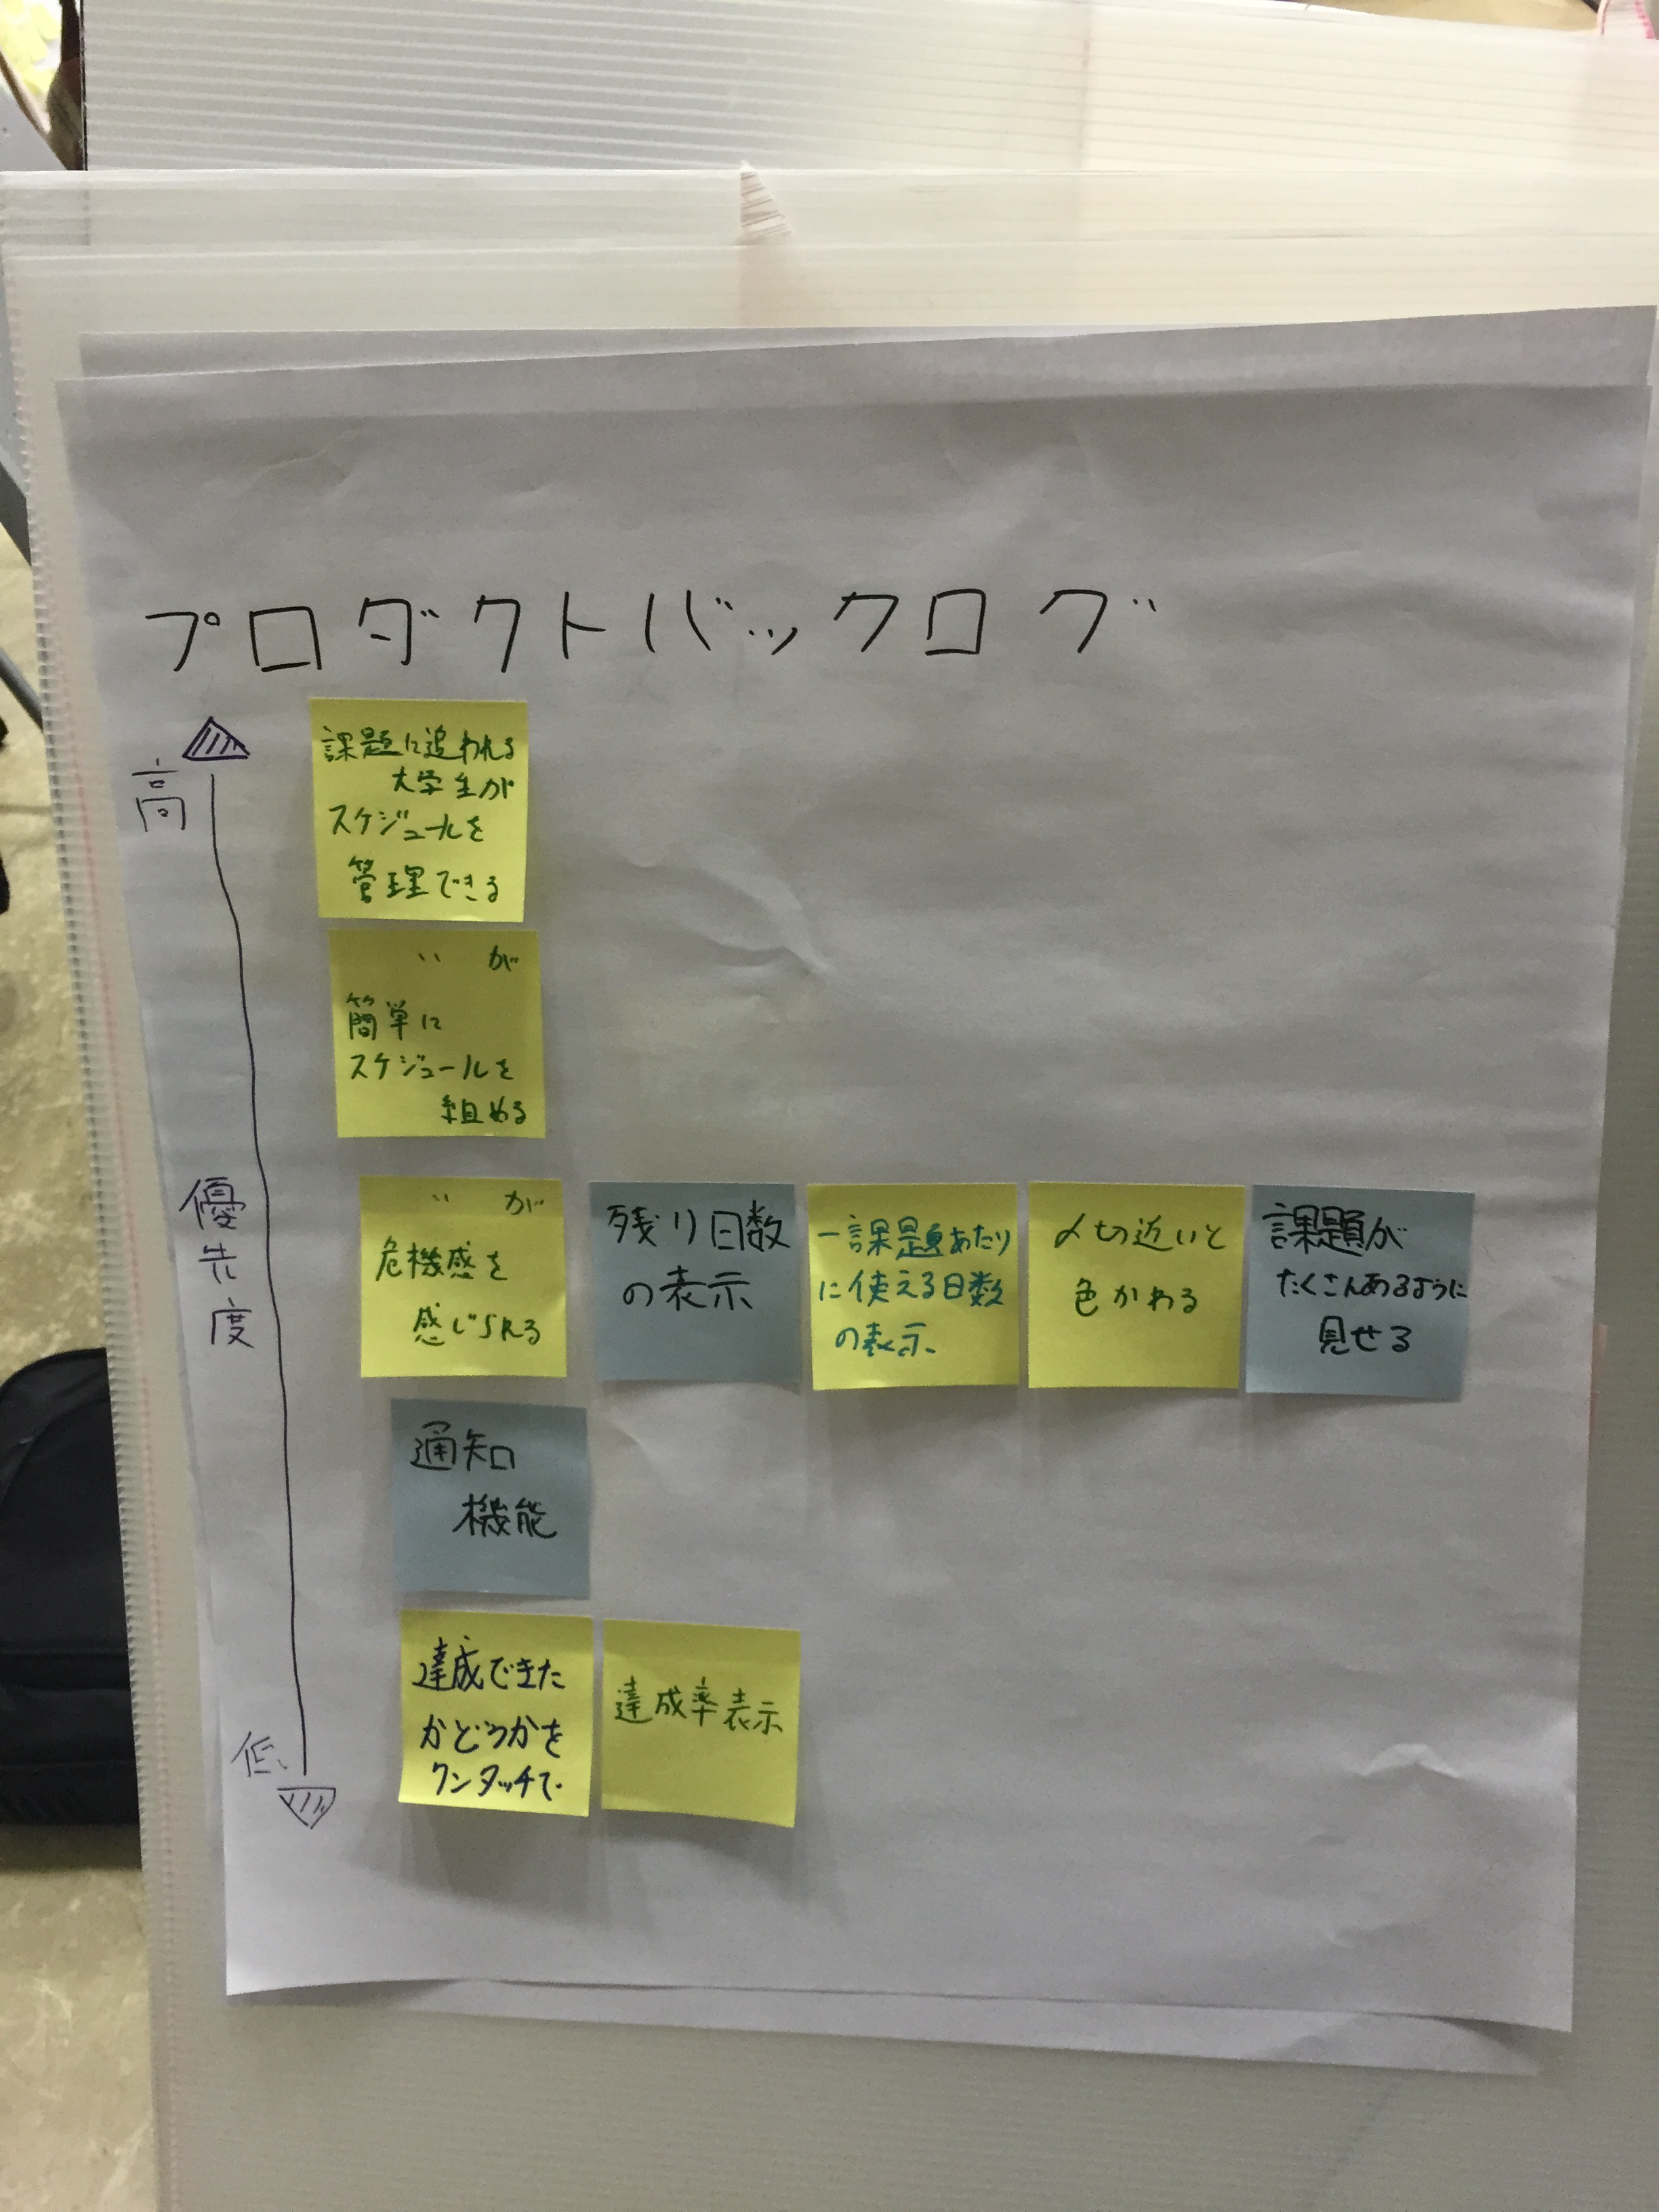 プロダクトバックログ
高
優先度
低
課題に追われる
大学生が
スケジュールを
管理できる
〃 が
簡単に
スケジュールを
組める
〃 が
危機感を
感じられる
残り日数
の表示
一課題あたり
に使える日数
の表示
〆切近いと
色かわる
課題が
たくさんあるように
見せる
通知
機能
達成できた
かどうかを
ワンタッチで
達成率表示